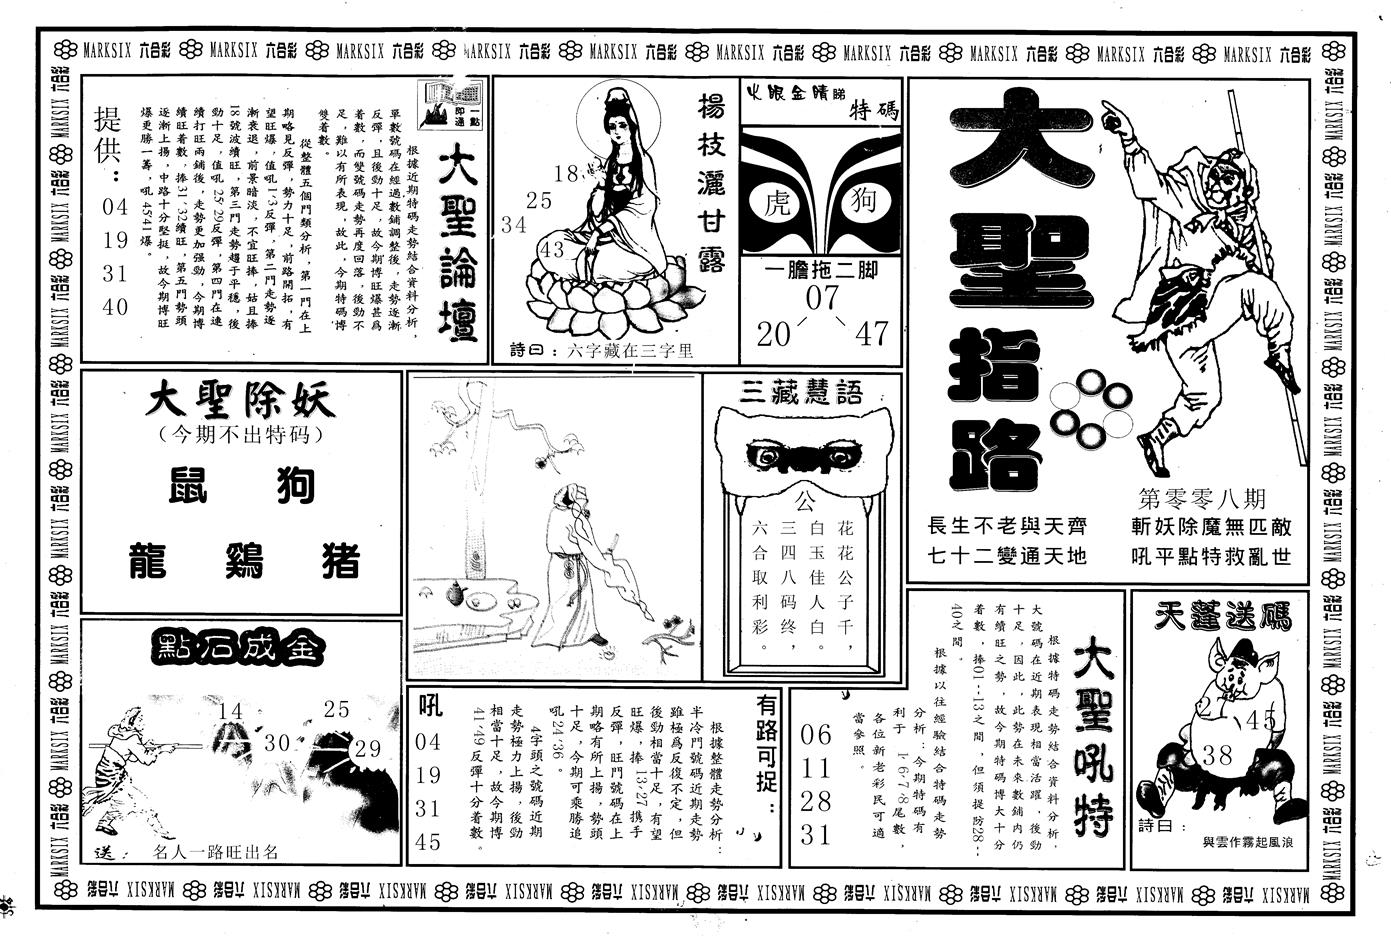 MARKSIX 六合彩 MARKSIX 六合彩 MARKSIX 六合彩 MARKSIX 六合彩 MARKSIX 六合彩 MARKSIX 六合彩 MARKSIX 六合彩 MARKSIX 六合彩 MARKSIX 六合彩 MARKSIX 六合彩
大聖指路
第零零八期
長生不老與天齊
七十二變通天地
斬妖除魔無匹敵
吼平點特救亂世
火眼金睛睇
特碼
虎
狗
一膽拖二脚
07
20
47
楊枝灑甘露
18
25
34
43
詩曰：六字藏在三字里
一點即通
大聖論壇
根據近期特碼走勢結合資料分析，
單數號碼在經過數鋪調整後，走勢逐漸
反彈，且後勁十足，故今期博旺爆甚爲
着數，而雙號碼走勢再度回落，後勁不
足，難以有所表現，故此，今期特碼博
雙着數。
從整體五個門類分析，第一門在上
期略見反彈，勢力十足，前路開拓，有
望旺爆，值吼1·3反彈，第二門走勢逐
漸衰退，前景暗淡，不宜旺捧，姑且捧
18號波續旺，第三門走勢趨于平穩，後
勁十足，值吼25·29反彈，第四門在連
續打旺兩鋪後，走勢更加强勁，今期博
續旺着數，捧31·32續旺，第五門勢頭
逐漸上揚，中路十分堅挺，故今期博旺
爆更勝一籌，吼45·41爆。
提供：
04
19
31
40
大聖除妖
（今期不出特码）
鼠 狗
龍 鷄 猪
三藏慧語
公
花花公子千，
白玉佳人白。
三四八码终，
六合取利彩。
點石成金
14
25
30
29
送：
名人一路旺出名
有路可捉：
根據整體走勢分析：
半冷門號碼近期走勢
雖極爲反復不定，但
後勁相當十足，有望
旺爆，捧13·27携手
反彈，旺門號碼在上
期略有所上揚，勢頭
十足，今期可乘勝追
吼24·36。
4字頭之號碼近期
走勢極力上揚，後勁
相當十足，故今期博
41·49反彈十分着數。
吼
04
19
31
45
大聖吼特
根據特碼走勢結合資料分析，
大號碼在近期表現相當活躍，後勁
十足，因此，此勢在未來數鋪内仍
有續旺之勢，故今期特碼博大十分
着數，捧01--13之間，但須提防28--
40之間。
根據以往經驗結合特碼走勢
分析：今期特碼有
利于1·6·7·8尾數，
各位新老彩民可適
當參照。
06
11
28
31
天蓬送碼
45
38
詩曰：
與雲作霧起風浪